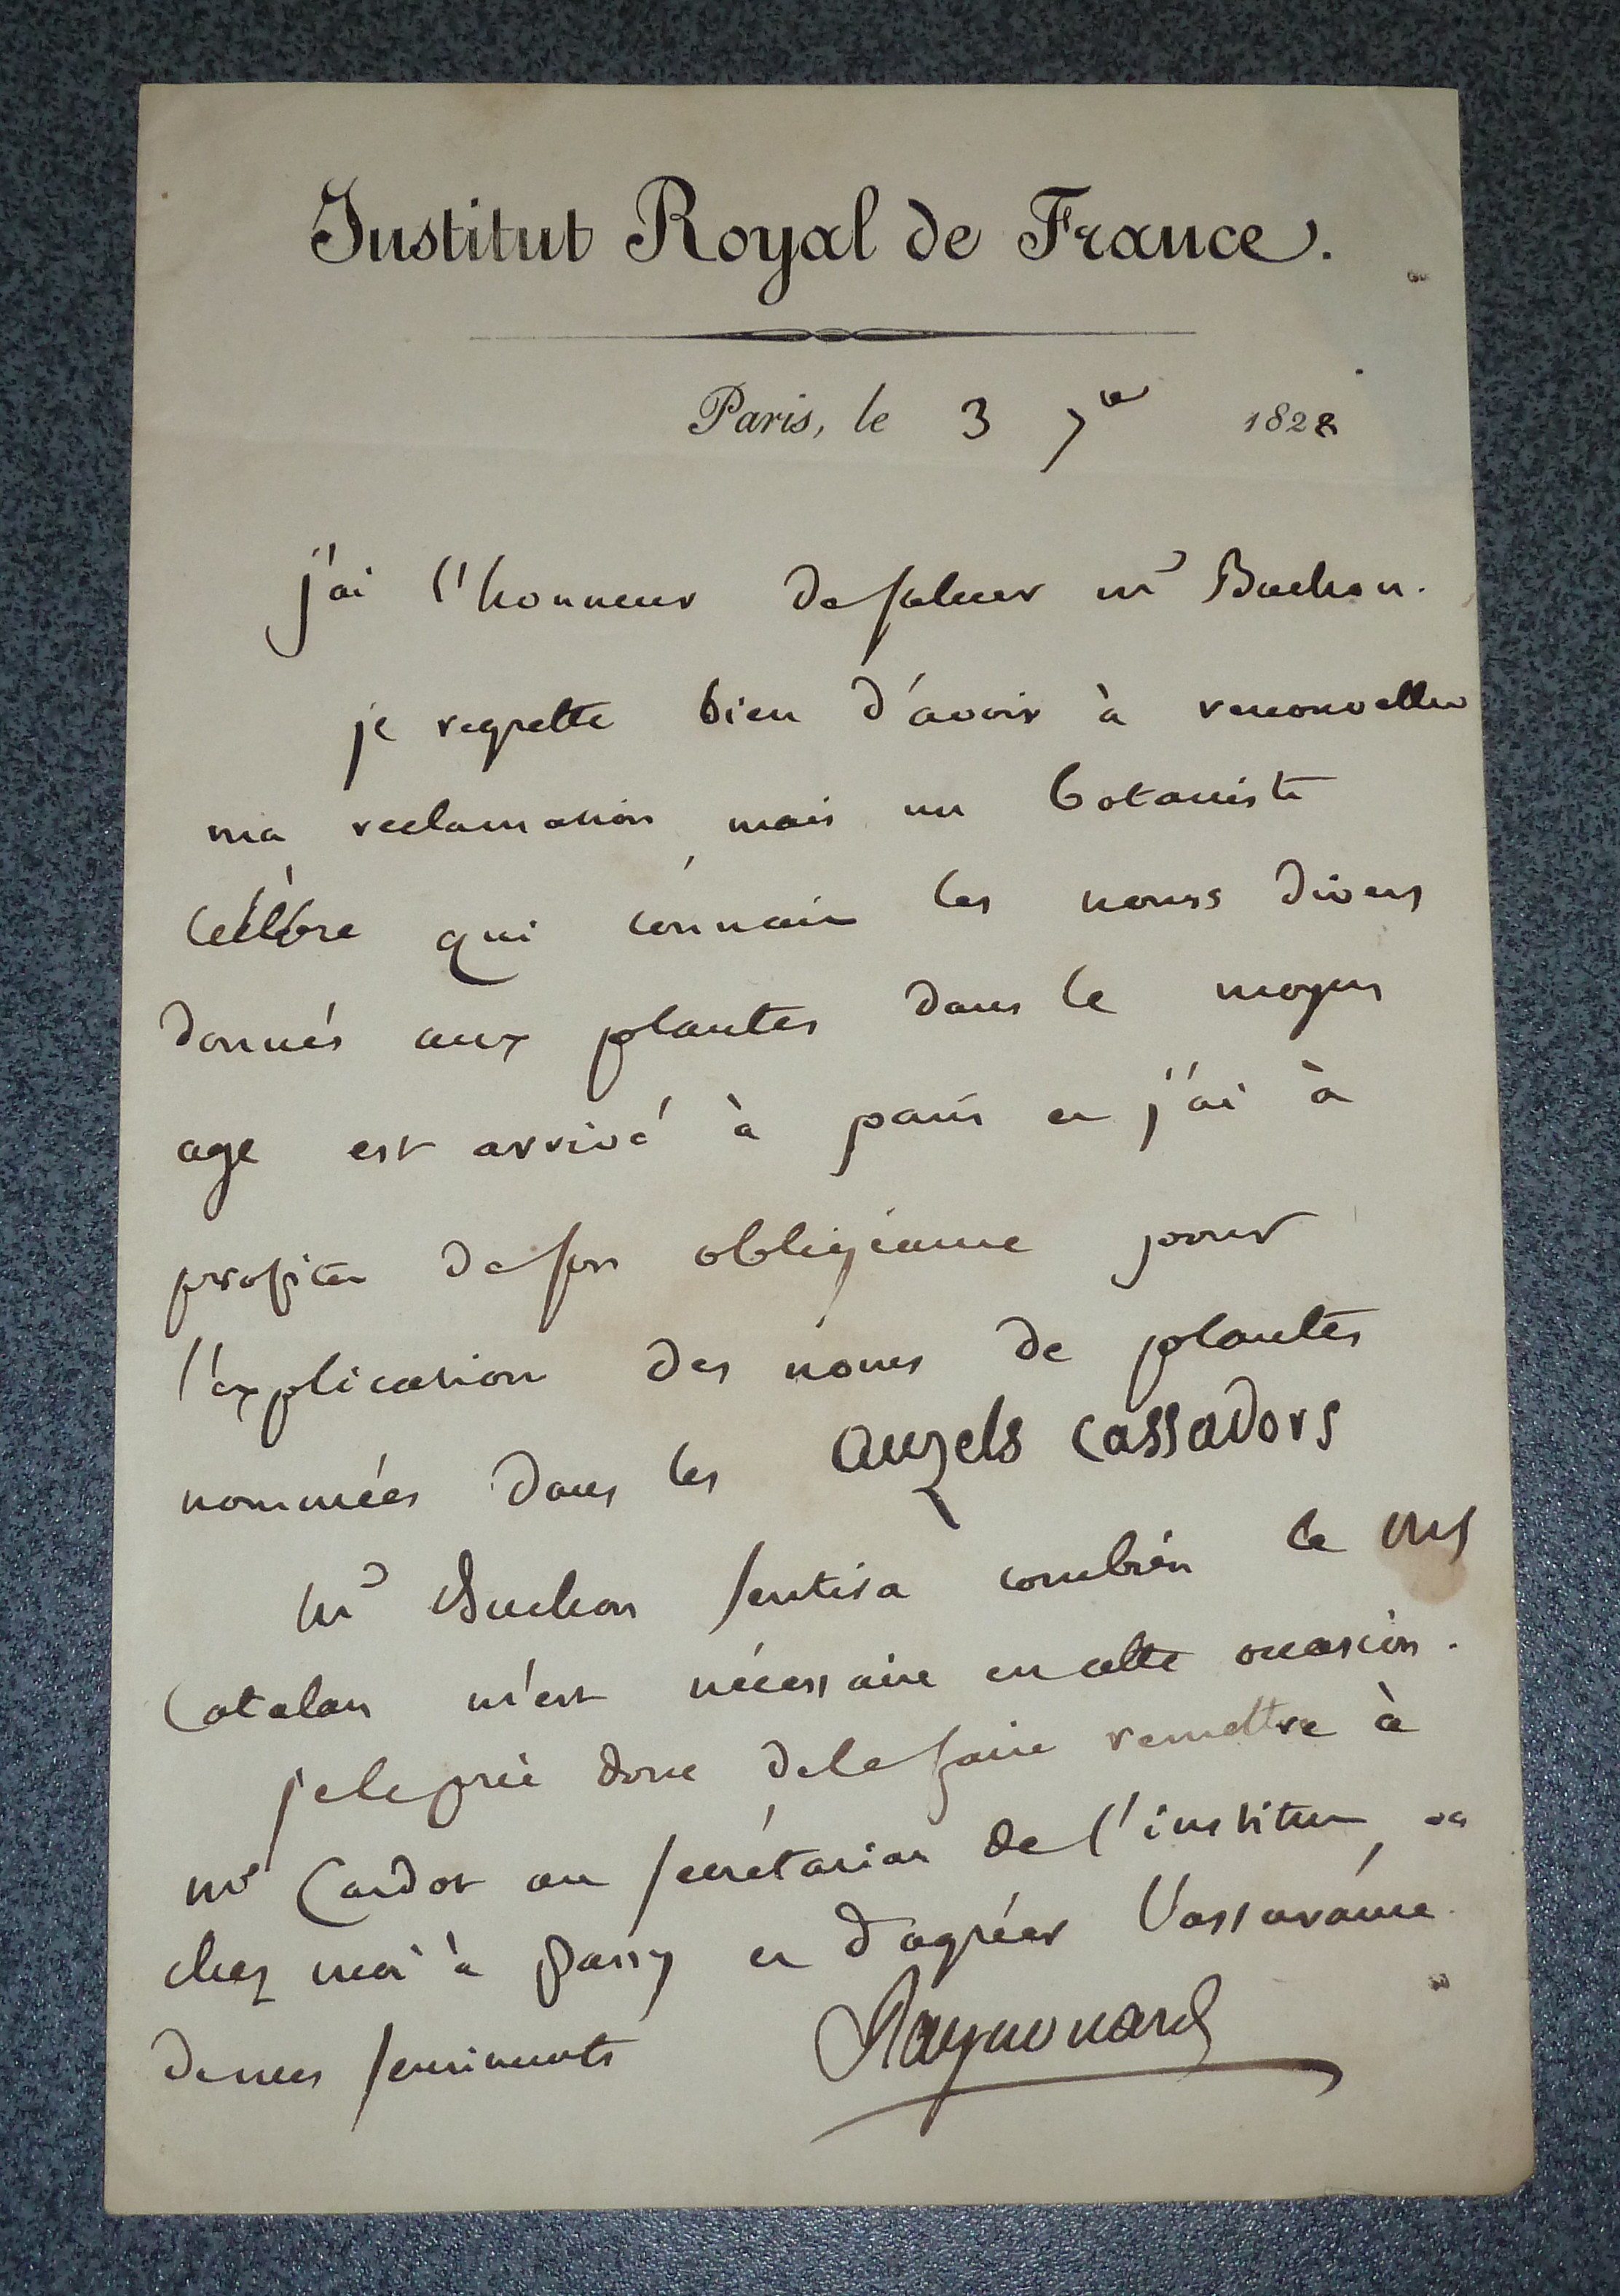 Institut Royal de France.
Paris, le 3 7bre 1828
j'ai l'honneur de saluer mr Buchon.
je regrette bien d'avoir à renouveller
ma reclamation, mais un botaniste
célèbre qui connait les noms divers
donnés aux plantes dans le moyen
age est arrivé à paris et j'ai à
profiter de son obligeance pour
l'explication des noms de plantes
nommées dans les auzels cassadors
mr Buchon sentira combien le ms
catalan m'est nécessaire en cette occasion.
je le prie donc de le faire remettre à
mr Cardot au secrétariat de l'institut, ou
chez moi à passy et d'agréer l'assurance
de mes sentiments Raynouard